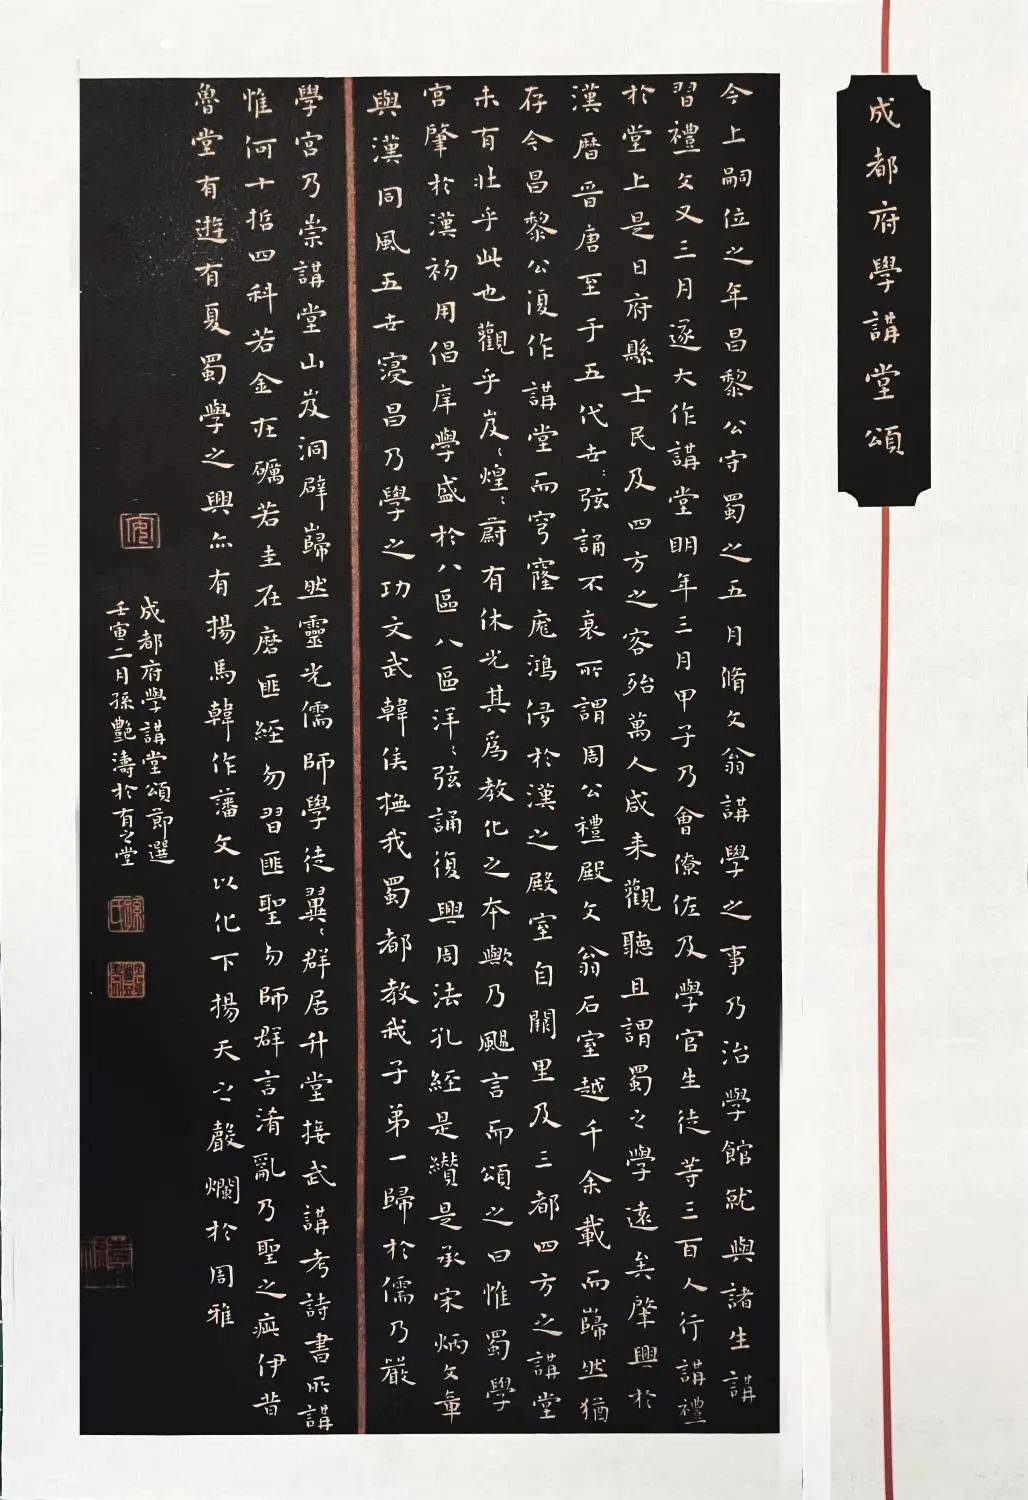 成都府學講堂頌
今上嗣位之年昌黎公守蜀之五月脩文翁講學之事乃治學館就與諸生講
習禮文又三月遂大作講堂明年三月甲子乃會僚佐及學官生徒等三百人行講禮
於堂上是日府縣士民及四方之客殆萬人咸来觀聽且謂蜀之學遠矣肇興於
漢曆晉唐至于五代世〻弦誦不衰所謂周公禮殿文翁石室越千余載而巋然猶
存今昌黎公復作講堂而穹窿庬鴻侔於漢之殿室自闕里及三都四方之講堂
未有壮乎此也觀乎岌〻煌〻蔚有休光其為教化之本歟乃颺言而頌之曰惟蜀學
宮肇於漢初用倡庠學盛於八區八區洋〻弦誦復興周法孔経是纘是承宋炳文章
與漢同風五世寖昌乃學之功文武韓侯撫我蜀都教我子弟一歸於儒乃嚴
學宮乃崇講堂山岌洞辟巋然靈光儒師學徒翼〻群居升堂接武講考詩書所講
惟何十哲四科若金在礪若圭在磨匪経勿習匪聖勿師群言淆亂乃聖之疵伊昔
魯堂有遊有夏蜀學之興亦有揚馬韓作藩文以化下揚天之聲爛於周雅
成都府學講堂頌節選
壬寅二月孫艷濤於有之堂